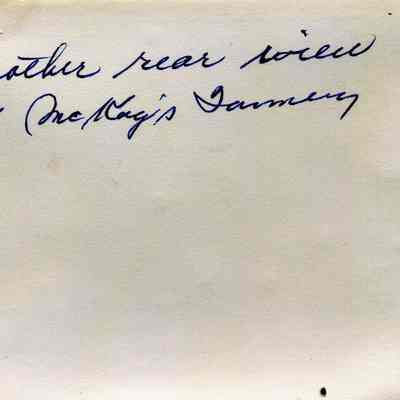 other rear view
McKay's Tannery